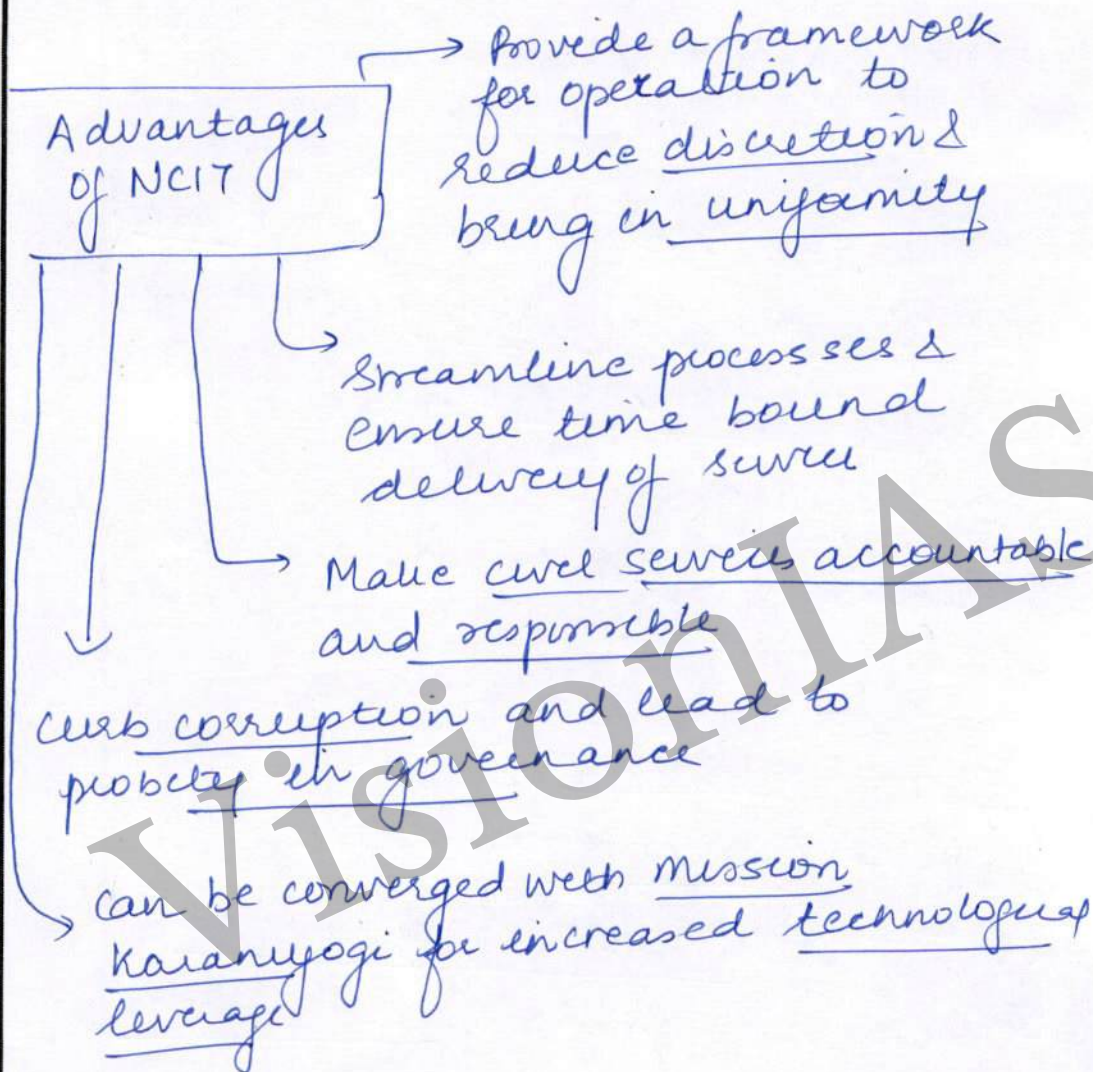 Advantages
of NCIT
Provide a framework
for operation to
reduce discretion &
bring in uniformity
Streamline processes &
ensure time bound
delivery of service
Make civil servers accountable
and responsible
curb corruption and lead to
probity in governance
can be converged with Mission
Karamyogi for increased technological
leverage
VisionIAS